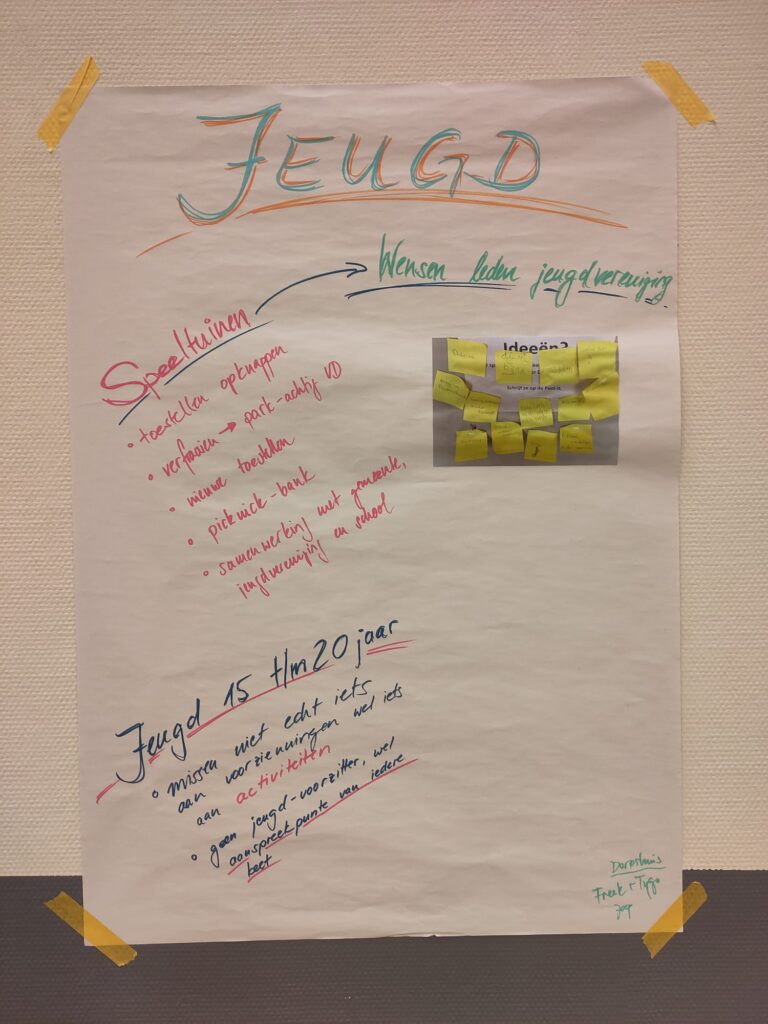 JEUGD
Wensen leden jeugdvereniging
Speeltuinen
• toestellen opknappen
• verfraaien → park-achtig VD
• nieuwe toestellen
• picknick-bank
• samenwerking met gemeente,
jeugdvereniging en school
Ideeën?
Schrijf ze op de Post-it.
Jeugd 15 t/m 20 jaar
• missen niet echt iets
aan voorzienningen wel iets
aan activiteiten
• geen jeugd-voorzitter, wel
aanspreekpunte van iedere
keet
Dorpshuis
Freek + Tygo